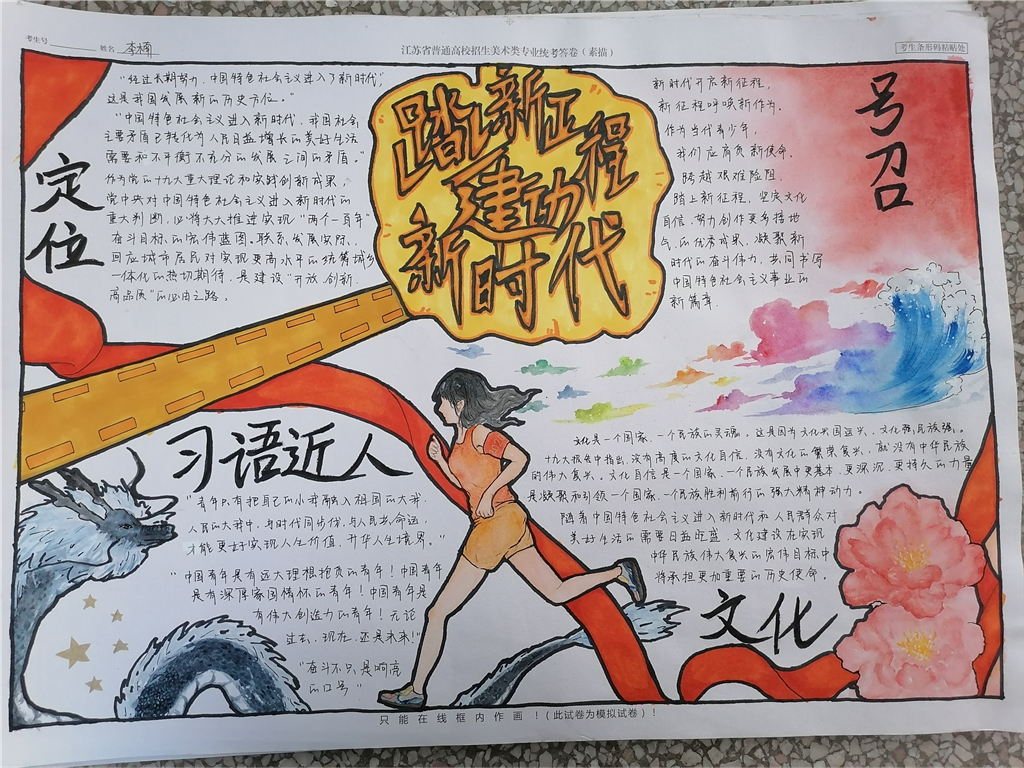 考生号
姓名 李楠
江苏省普通高校招生美术类专业统考答卷（素描）
考生条形码粘贴处
定位
“经过长期努力，中国特色社会主义进入了新时代，
这是我国发展新的历史方位。”
“中国特色社会主义进入新时代，我国社会
主要矛盾已转化为人民日益增长的美好生活
需要和不平衡不充分的发展之间的矛盾。”
作为党的十九大重大理论和实践创新成果，
党中央对中国特色社会主义进入新时代的
重大判断，必将大大推进实现“两个一百年”
奋斗目标的宏伟蓝图。联系发展实际，
回应城市居民对实现更高水平的统筹城乡
一体化的热切期待，是建设“开放、创新、
高品质”的必由之路。
踏新征程
建功
新时代
号召
新时代开启新征程，
新征程呼唤新作为，
作为当代青少年，
我们应肩负新使命，
跨越艰难险阻，
踏上新征程，坚定文化
自信，努力创作更多接地
气的优秀成果，凝聚新
时代的奋斗伟力，共同书写
中国特色社会主义事业的
新篇章
习语近人
“青年只有把自己的小我融入祖国的大我、
人民的大我中，与时代同步伐、与人民共命运，
才能更好实现人生价值、升华人生境界。”
“中国青年是有远大理想抱负的青年！中国青年
是有深厚家国情怀的青年！中国青年是
有伟大创造力的青年！无论
过去、现在、还是未来！”
“奋斗不只是响亮
的口号”
文化
文化是一个国家、一个民族的灵魂。这是因为文化兴国运兴，文化强民族强。
十九大报告中指出，没有高度的文化自信，没有文化的繁荣复兴，就没有中华民族
的伟大复兴。文化自信是一个国家、一个民族发展中更基本、更深沉、更持久的力量
是凝聚和引领一个国家、一个民族胜利前行的强大精神动力。
随着中国特色社会主义进入新时代和人民群众对
美好生活的需要日益旺盛，文化建设在实现
中华民族伟大复兴的宏伟目标中
将承担更加重要的历史使命。
只能在线框内作画！（此试卷为模拟试卷）！